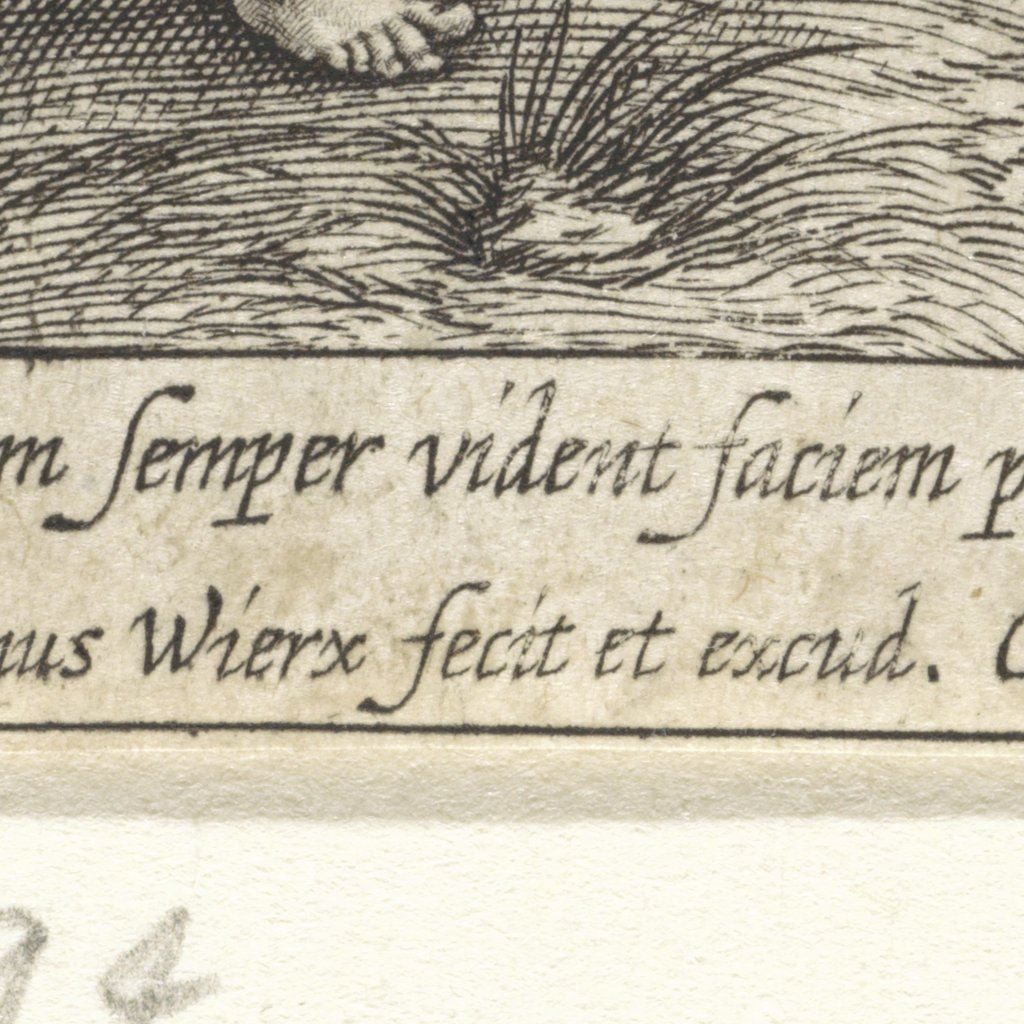 m semper vident faciem p
nus Wierx fecit et excud. C
94